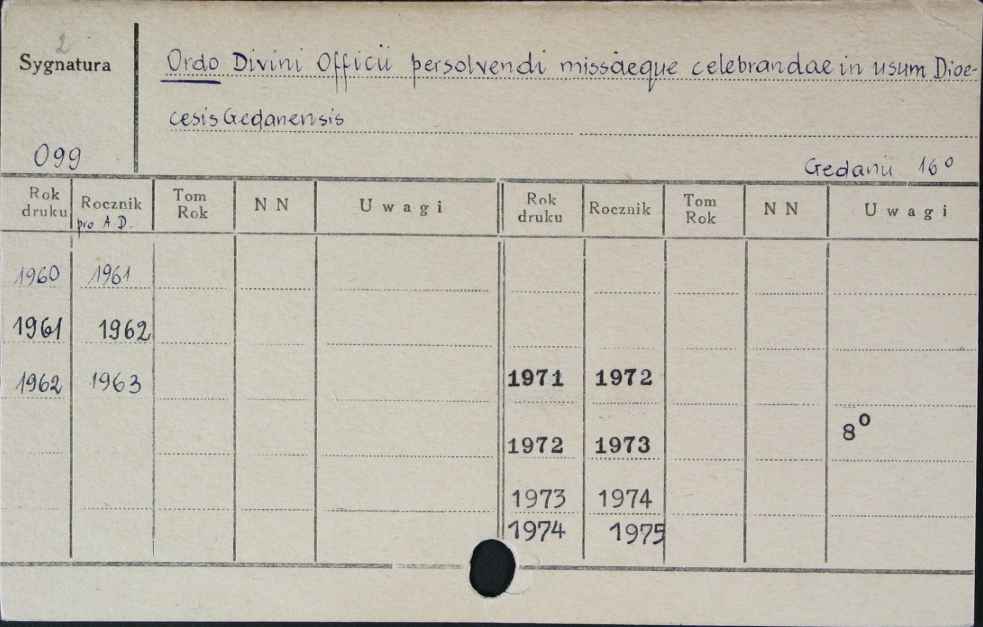 2
Sygnatura
Ordo Divini Officii persolvendi missaeque celebrandae in usum Dioe-
cesis Gedanensis
099
Gedanii 16°
Rok druku Rocznik pro A.D. Tom Rok NN Uwagi Rok druku Rocznik Tom Rok NN Uwagi
1960 1961
1961 1962
1962 1963 1971 1972
1972 1973 8°
1973 1974
1974 1975